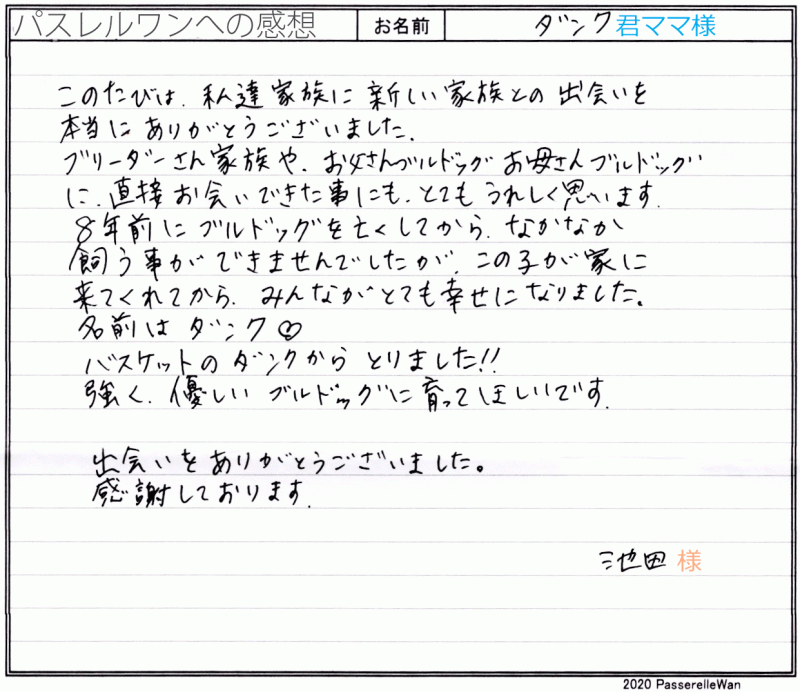 パスレルワンへの感想 お名前 ダンク君ママ様
このたびは、私達家族に新しい家族との出会いを
本当にありがとうございました。
ブリーダーさん家族や、お父さんブルドッグお母さんブルドッグ
に、直接お会いできた事にも、とてもうれしく思います。
8年前にブルドッグを亡くしてから、なかなか
飼う事ができませんでしたが、この子が家に
来てくれてから、みんながとても幸せになりました。
名前はダンク♡
バスケットのダンクからとりました!!
強く、優しいブルドッグに育ってほしいです。
出会いをありがとうございました。
感謝しております。
池田様
2020 PasserelleWan